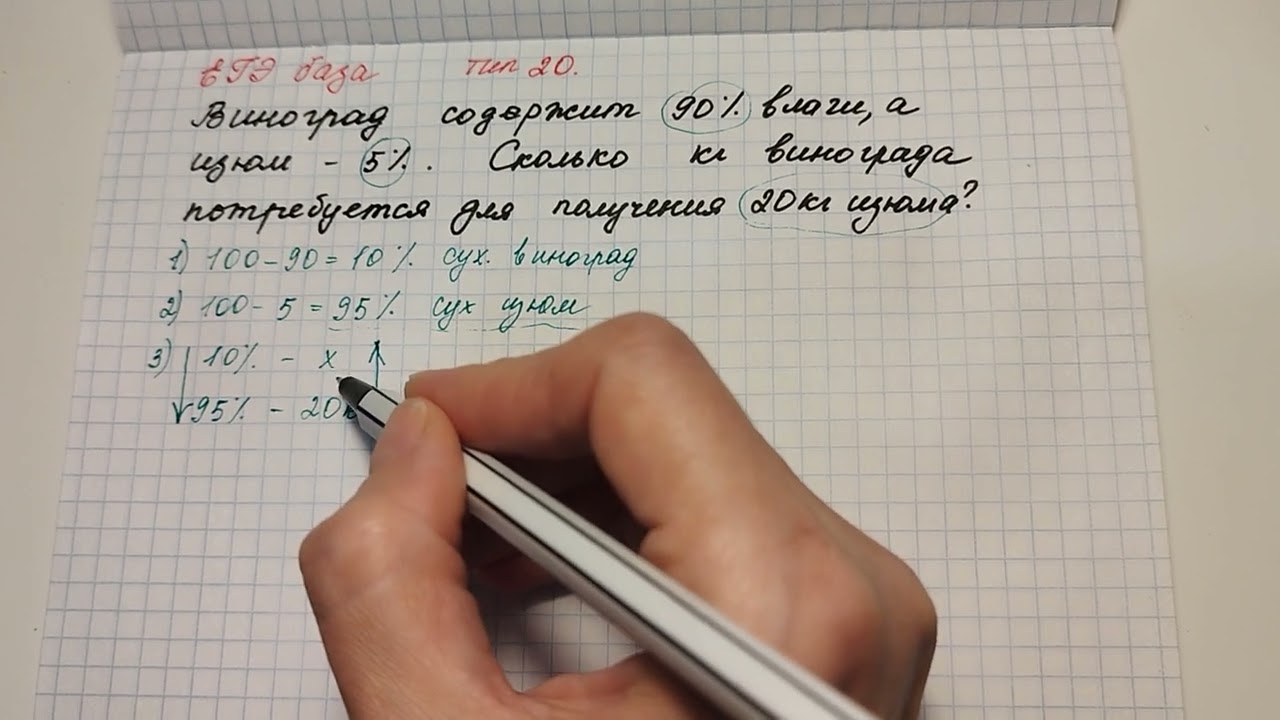 ЕГЭ база тип 20.
Виноград содержит 90% влаги, а
изюм - 5%. Сколько кг винограда
потребуется для получения 20кг изюма?
1) 100-90=10% сух. виноград
2) 100-5=95% сух изюм
3) 10% - х
95% - 20